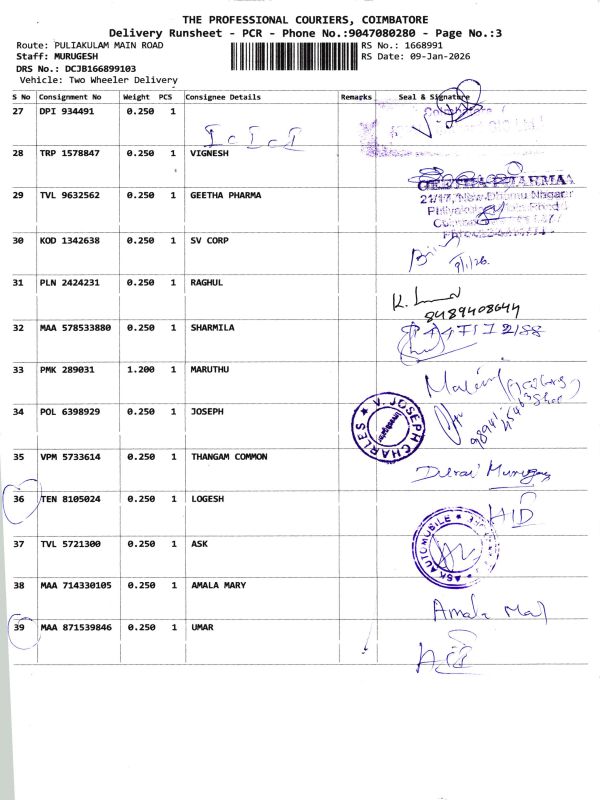 THE PROFESSIONAL COURIERS, COIMBATORE
Delivery Runsheet - PCR - Phone No.:9047080280 - Page No.:3
Route: PULIAKULAM MAIN ROAD
RS No.: 1668991
Staff: MURUGESH
RS Date: 09-Jan-2026
DRS No.: DCJB166899103
Vehicle: Two Wheeler Delivery
S No Consignment No Weight PCS Consignee Details Remarks Seal & Signature
27 DPI 934491 0.250 1
ICICI
28 TRP 1578847 0.250 1 VIGNESH
29 TVL 9632562 0.250 1 GEETHA PHARMA
GEETHA PHARMA
30 KOD 1342638 0.250 1 SV CORP
9/1/26
31 PLN 2424231 0.250 1 RAGHUL
8489408644
32 MAA 578533880 0.250 1 SHARMILA
33 PMK 289031 1.200 1 MARUTHU
34 POL 6398929 0.250 1 JOSEPH
V. JOSEPH CHARLES
35 VPM 5733614 0.250 1 THANGAM COMMON
Durai Murugan
36 TEN 8105024 0.250 1 LOGESH
HID
37 TVL 5721300 0.250 1 ASK
ASK AUTOMOBILE
38 MAA 714330105 0.250 1 AMALA MARY
Amala Mary
39 MAA 871539846 0.250 1 UMAR